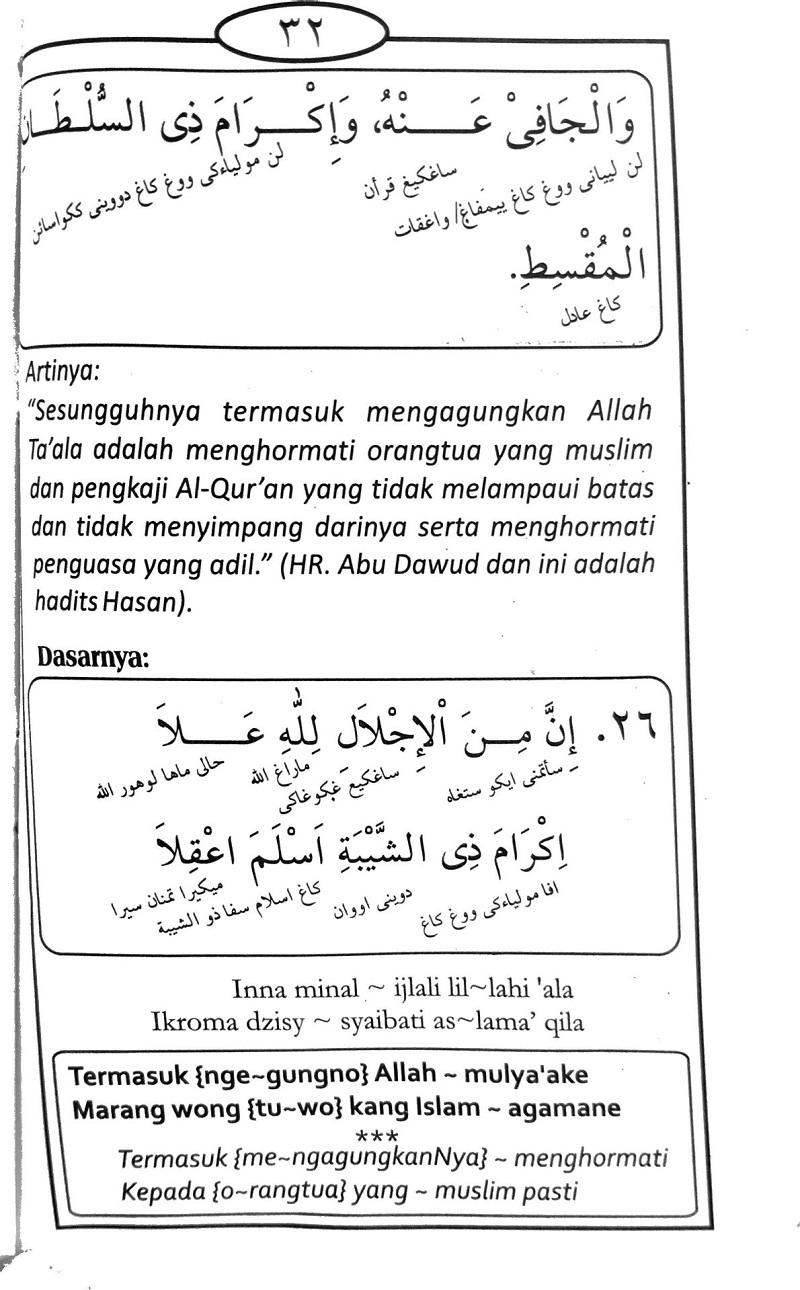 ٣٢
وَالْجَافِيْ عَنْهُ، وَإِكْرَامَ ذِى السُّلْطَانِ
لن ليياني ووغ كاغ ييمفاغ/ واغقات
ساغكيغ قرأن
لن مولياءكى ووغ كاغ دوويني ككواسائن
الْمُقْسِطِ.
كاغ عادل
Artinya:
"Sesungguhnya termasuk mengagungkan Allah
Ta'ala adalah menghormati orangtua yang muslim
dan pengkaji Al-Qur'an yang tidak melampaui batas
dan tidak menyimpang darinya serta menghormati
penguasa yang adil." (HR. Abu Dawud dan ini adalah
hadits Hasan).
Dasarnya:
٢٦. إِنَّ مِنَ الْإِجْلَالِ لِلّٰهِ عَلاَ
ساتمني ايكو ستغه
ساغكيغ غكوغاكى
ماراغ الله
حالى ماها لوهور الله
اِكْرَامَ ذِى الشَّيْبَةِ اَسْلَمَ اعْقِلاَ
افا مولياءكى ووغ كاغ
دوويني اووان
كاغ اسلام سفا ذو الشيبة
ميكيرا تمنان سيرا
Inna minal ~ ijlali lil~lahi 'ala
Ikroma dzisy ~ syaibati as~lama' qila
Termasuk {nge~gungno} Allah ~ mulya'ake
Marang wong {tu~wo} kang Islam ~ agamane
***
Termasuk {me~ngagungkanNya} ~ menghormati
Kepada {o~rangtua} yang ~ muslim pasti